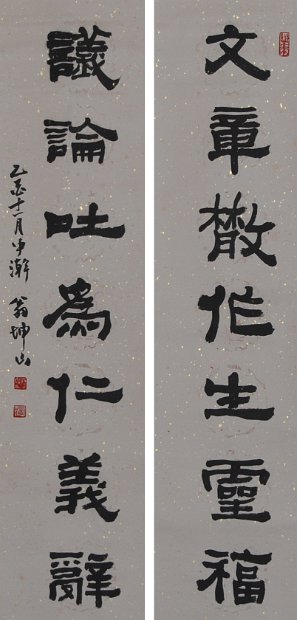 文章散作生靈福
議論吐為仁義辭
乙亥十一月中澣 翁坤山